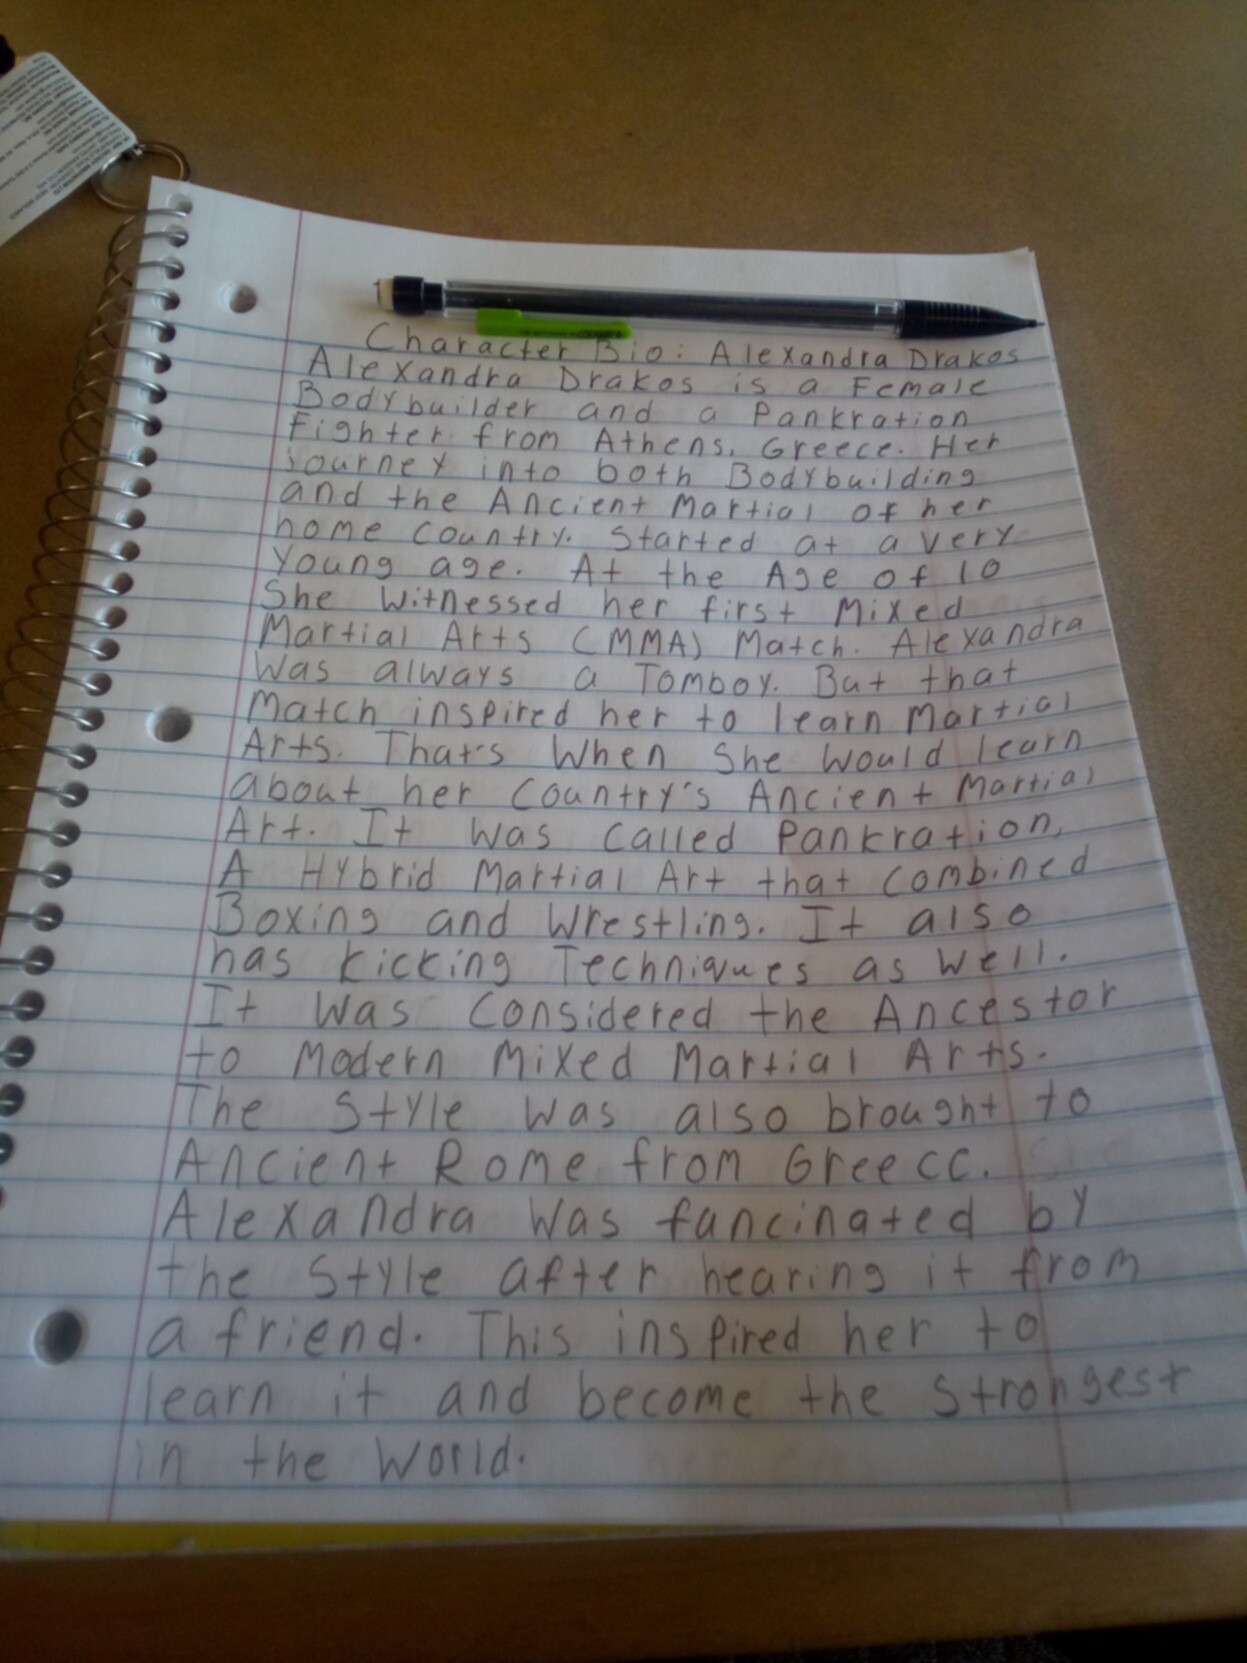 Character Bio: Alexandra Drakos
Alexandra Drakos is a Female
Bodybuilder and a Pankration
Fighter from Athens, Greece. Her
Journey into both Bodybuilding
and the Ancient Martial of her
home Country. Started at a very
Young age. At the Age of 10
She Witnessed her first Mixed
Martial Arts (MMA) Match. Alexandra
was always a Tomboy. But that
Match inspired her to learn Martial
Arts. That's When She Would learn
about her Country's Ancient Martial
Art. It was Called Pankration,
A Hybrid Martial Art that Combined
Boxing and Wrestling. It also
has kicking Techniques as well.
It was Considered the Ancestor
to Modern Mixed Martial Arts.
The Style was also brought to
Ancient Rome from Greece.
Alexandra Was fancinated by
the Style after hearing it from
a friend. This inspired her to
learn it and become the Strongest
in the World.